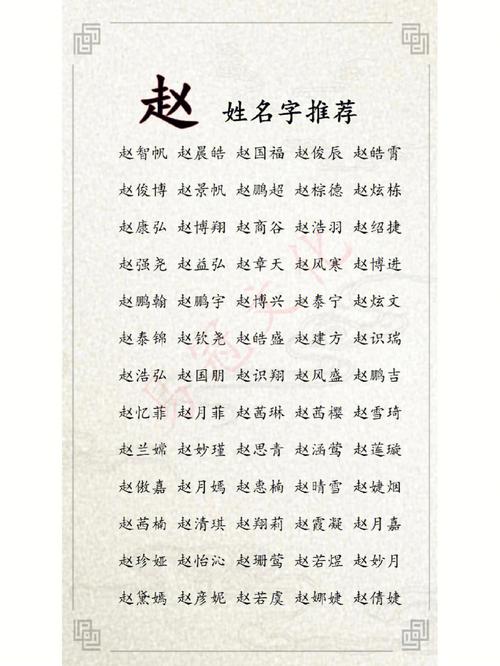 赵 姓名字推荐
赵智帆 赵晨皓 赵国福 赵俊辰 赵皓霄
赵俊博 赵景帆 赵鹏超 赵棕德 赵炫栋
赵康弘 赵博翔 赵商谷 赵浩羽 赵绍捷
赵强尧 赵益弘 赵章天 赵风寒 赵博进
赵鹏翰 赵鹏宇 赵博兴 赵泰宁 赵炫文
赵泰锦 赵钦尧 赵皓盛 赵建方 赵识瑞
赵浩弘 赵国朋 赵识翔 赵风盛 赵鹏吉
赵忆菲 赵月菲 赵茜琳 赵茜樱 赵雪琦
赵兰嫦 赵妙瑾 赵思青 赵涵莺 赵莲璇
赵傲嘉 赵月嫣 赵惠楠 赵晴雪 赵婕烟
赵茜楠 赵清琪 赵翔莉 赵霞凝 赵月嘉
赵珍娅 赵怡沁 赵珊莺 赵若煜 赵妙月
赵黛嫣 赵彦妮 赵若虞 赵娜婕 赵倩婕